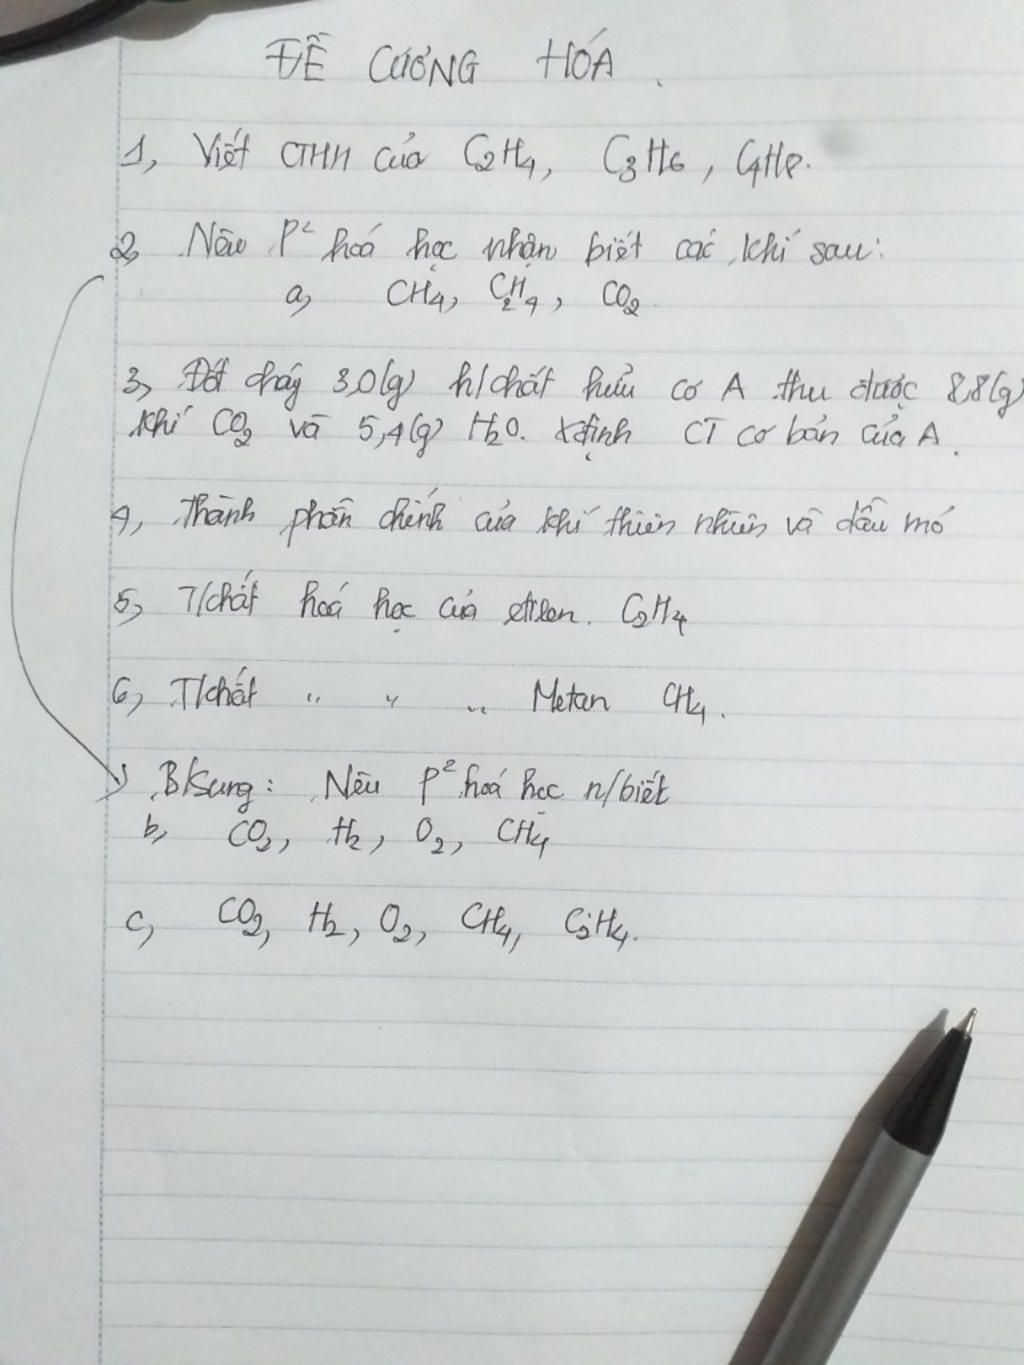 ĐỀ CƯƠNG HÓA.
1, Viết CTHH của C2H4, C3H6, C4H8.
2, Nêu P² hoá học nhận biết các khí sau:
a, CH4, C2H4, CO2.
3, Đốt cháy 3,0(g) h/chất hữu cơ A thu được 8,8(g)
khí CO2 và 5,4(g) H2O. Xđịnh CT cơ bản của A.
4, Thành phần chính của khí thiên nhiên và dầu mỏ
5, T/chất hoá học của etilen. C2H4
6, T/chất " " " Metan CH4.
B/sung: Nêu P² hoá học n/biết
b, CO2, H2, O2, CH4
c, CO2, H2, O2, CH4, C2H4.